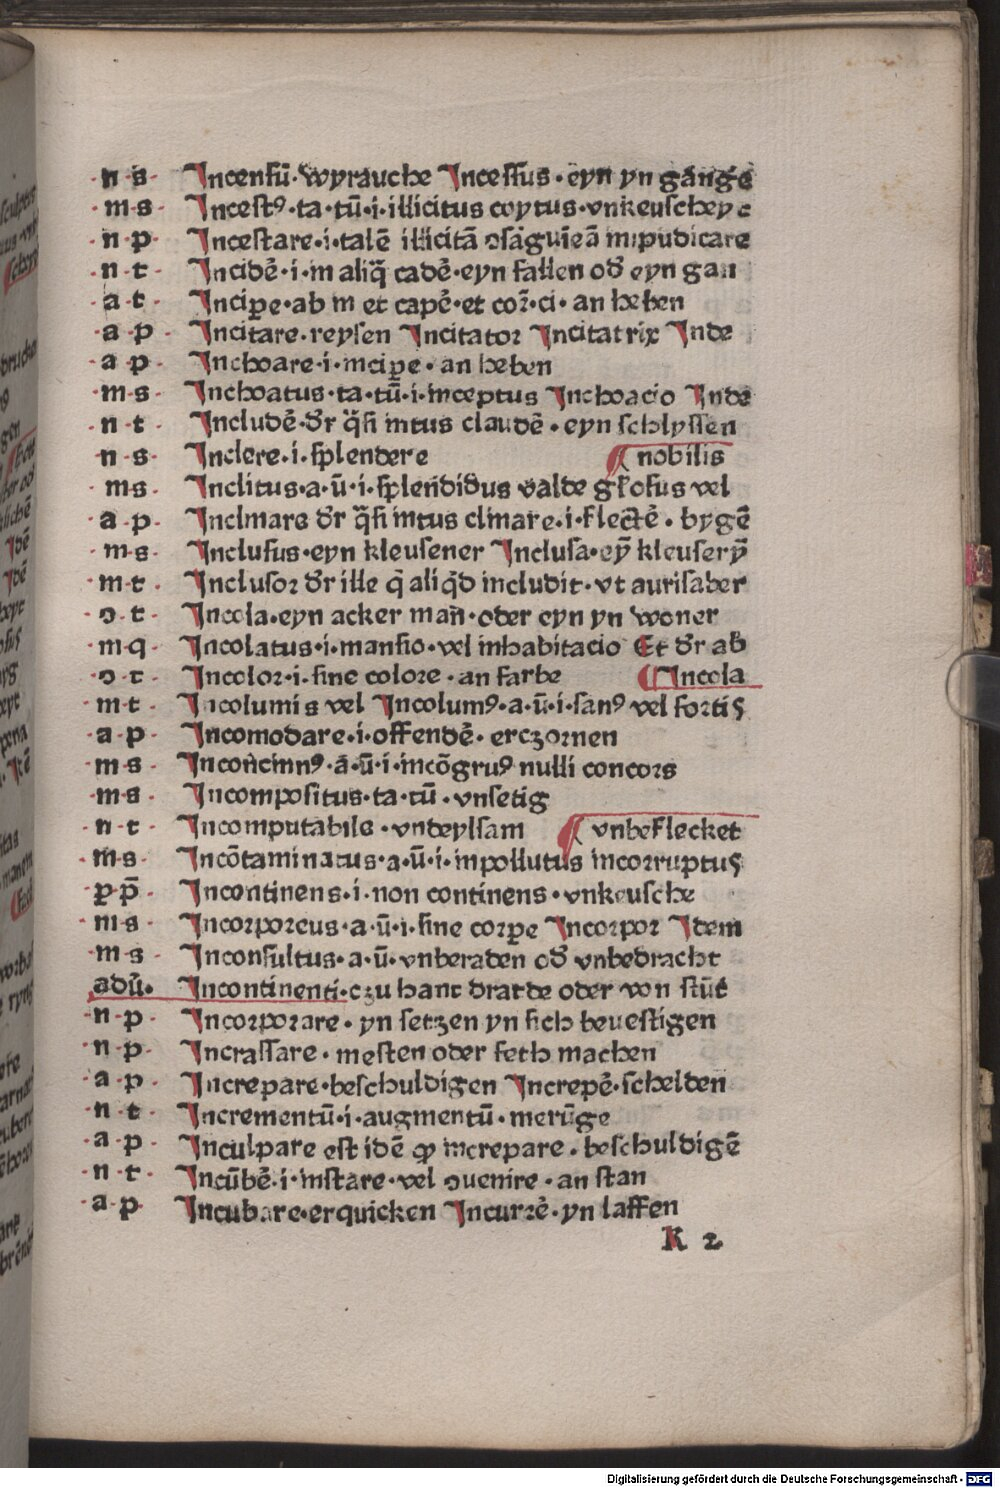 ·n·s· Incensū·Wyrauche Incessus·eyn yn gange
·m·s· Incestꝰ·ta·tū·i·illicitus coytus·vnkeuschey
·n·p· Incestare·i·talē illicitā ꝯsāguīeā impudicare
·n·t· Incidē·i·in aliq̄ cadē·eyn fallen od̄ eyn gan
·a·t· Incipe·ab in et capē·et cor̄·ci·an heben
·a·p· Incitare·reysen Incitator Incitatrix Inde
·a·p· Inchoare·i·incipe·an heben
·m·s· Inchoatus·ta·tū·i·inceptus Inchoacio Inde
·n·t· Includē·dr̄ q̄si intus claudē·eyn schlyssen
·n·s· Inclere·i·splendere ⸿ nobilis
·m·s· Inclitus·a·ū·i·splendidus valde gl̄osus vel
·a·p· Inclinare dr̄ q̄si intus clinare·i·flectē·bygē
·m·s· Inclusus·eyn kleusener Inclusa·eȳ kleuserȳ
·m·t· Inclusor dr̄ ille q̄ aliq̄d includit·vt aurifaber
·ꝯ·t· Incola·eyn acker man̄·oder eyn yn woner
·m·q· Incolatus·i·mansio·vel inhabitacio Et dr̄ ab
·ꝯ·t· Incolor·i·sine colore·an farbe ⸿ Incola
·m·t· Incolumis vel Incolumꝰ·a·ū·i·sanꝰ vel fortis
·a·p· Incomodare·i·offendē·erczornen
·m·s· Inconcinnꝰ·a·ū·i·incōgruꝰ nulli concors
·m·s· Incompositus·ta·tū·vnsetig
·n·t· Incomputabile·vndeylsam ⸿ vnbeflecket
·m·s· Incōtaminatus·a·ū·i·inpollutus incorruptus
p·p̄· Incontinens·i·non continens·vnkeusche
·m·s· Incorporeus·a·ū·i·sine corpe Incorpor Idem
·m·s· Inconsultus·a·ū·vnberaden od̄ vnbedracht
adū· Incontinenti·czu hant dratde oder von stūt
·n·p· Incorporare·yn setzen yn sich beuestigen
·n·p· Incrassare·mesten oder feth machen
·a·p· Increpare·beschuldigen Increpē·schelden
·n·t· Incrementū·i·augmentū·merūge
·a·p· Inculpare est idē ꝙ increpare·beschuldigē
·n·t· Incūbē·i·instare·vel ꝯuenire·an stan
·a·p· Incubare·erquicken Incurrē·yn laffen
K 2
Digitalisierung gefördert durch die Deutsche Forschungsgemeinschaft - DFG